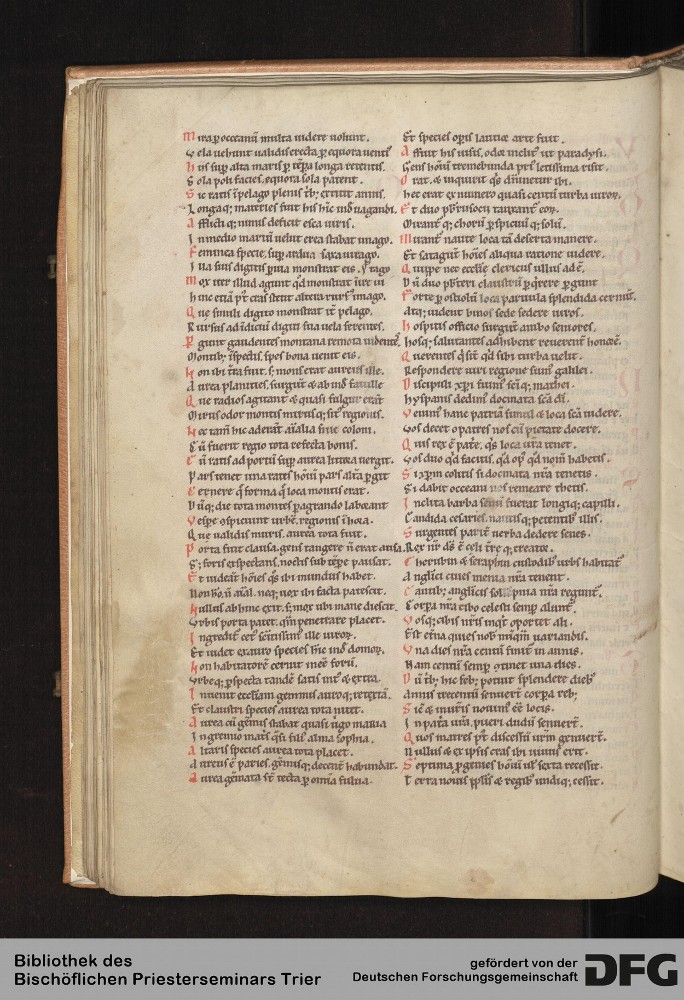 Mira p occeanū multa uidere uolunt.
Vela uehunt ualidis erecta p equora uentis
His sup alta maris p tēpora longa retentis.
Sola poli facies, equora sola patent.
Sic ratis ī pelago plenis trib; extitit annis.
Longaq; materies fuit his hīc inđ uagandi.
Afflicti q; nimis deficit esca uiris.
In medio mariū uelut erea stabat imago.
Feminea specie, sup ardua saxa uirago.
Illa suis digitis p̄uia monstrat eis.
Mox iter illud agunt qđ monstrat
hinc etiā pt̄ cras stetit altera rursus imago.
Que simili digito monstrat it̄ pelago.
Rursus ad īdiciū digiti sua uela ferentes.
Pgunt gaudentes montana remota uidentes.
Montib; īspectis, spes bona uenit eis.
Non ibi t̄ra fuit, s; mons erat aureus ille.
Aurea planities, surgūt & ab inđ fauille
Que radios agitant & quasi fulgur erant
Mirus odor montis mirusq; sit regionis.
Nec tam̄ hic aderāt aīalia siue coloni.
Cū fuerit regio tota referta bonis.
Cū ratis ad portū sup aurea littora uergit.
Pars tenet una ratē hoīnū pars altā pgit
Cernere q̄ forma q̄ loca montis erat.
Dūq; die tota montes pagrando laborant
Vespe ospiciunt urbē, regionis ī hora.
Que ualidis muris, aurea tota fuit.
Porta fuit clausa, gens tangere n̄ erat ausa.
S; foris exspectans, noctis sub tēpe pausat.
Et uideāt hoīes qs ibi mundus habet.
Non hō, n̄ aīal, neq; uox ibi facta patescit.
Nullus ab hinc exit, s; mox ubi mane diescit.
Vrbis porta patet, qm̄ penetrare placet.
Ingredit̄ cet̄ scītissim' ille uirorum.
Et uidet ex auro species hinc inđ domorum.
Non habitatorē cernit inēē forū.
Vrbeq; pspecta tandē satis int̄ & extra.
Inuenit ecclesiam gemmis auroq; retextā.
Et claustri species aurea tota nitet.
Aurea cū gēmis stabat quasi uirgo maria
In gremio matris qsi filius alma sophia.
Altaris species aurea tota placet.
Aureus ē paries, gēmisq; decent̄ habundat.
Aurea gēmata st̄ tecta p omnia fulua.
Et species opis latriæ arte fuit.
Affuit his uisis, odor inclit' ut paradysi.
Gens hoīnū tremebunda prius letissima risit.
Orat, & inquirit qs dn̄inetur ibi.
hec erat ex numero quasi centū turba uirorum.
Et duo pbrusocu
Mirant q; chorū pspiciunt q; solū.
Mirant̄ naute loca tā deserta manere.
Et satagūt hoīes aliqua ratione uidere.
Quippe nec eccl̄ie clericus ullus adē.
Dū duo pbrteri claustrū pqrere pgunt
Forte p ostiolū loca paruula splendida cernūt.
Atq; uident binos sede sedere uiros.
hospitis officio surgunt ambo seniores.
hosq; salutantes adhibent reuerent̄ honorē.
Querentes q̄ sit qđ sibi turba uelit.
Respondere uiri regione sumus galilei.
Discipuli xpi sumus sciq; mathei.
hyspanis dedimus docmata scā dī.
Venimus hanc patriā simul & loca scā uidere.
Vos decet o patres nos cū pietate docere.
Quis rex ē patrie, qs loca ura tenet.
Vos duo qđ facitis, qđ op' qđ nom̄ habetis.
Si xpm colitis si docmata nra tenetis.
Si dabit occeani nos remeare thetis.
Inclita barba senū fuerat longiq; capilli.
Candida cesaries, nautisq; petentibus illis.
Surgentes parit̄ uerba dedere senes.
Rex nr̄ ds ē celi t̄re q; creator.
Cherubin & seraphin custodibus urbs habitat'
Anglici ciues menia nra tenent.
Cantib; anglicis solempnia nra regunt̄.
Corpora nra cibo celesti semp alunt̄.
Vosq; cibis uris inqt oportet ali.
Est et̄na quies nobis numqam uariandis.
Vna dies nra centū finit̄ in annis.
Nam centū semp otinet una dies.
Dū trib; hic feb; potuit splendere diebus
Annis trecentū senuer̄t corpora reb;
Sic & muris nouimus ēē locis.
In patria ura, pueri dudū senuert̄.
Quos matres pt̄ discessū urm genuert̄.
Nullus & ex ipsis cras ibi uiuus erit.
Septima pgenies hoīnū uel sexta recessit.
Terra nouis pplis & regibus undiq; cessit.
Bibliothek des
Bischöflichen Priesterseminars Trier
gefördert von der
Deutschen Forschungsgemeinschaft
DFG